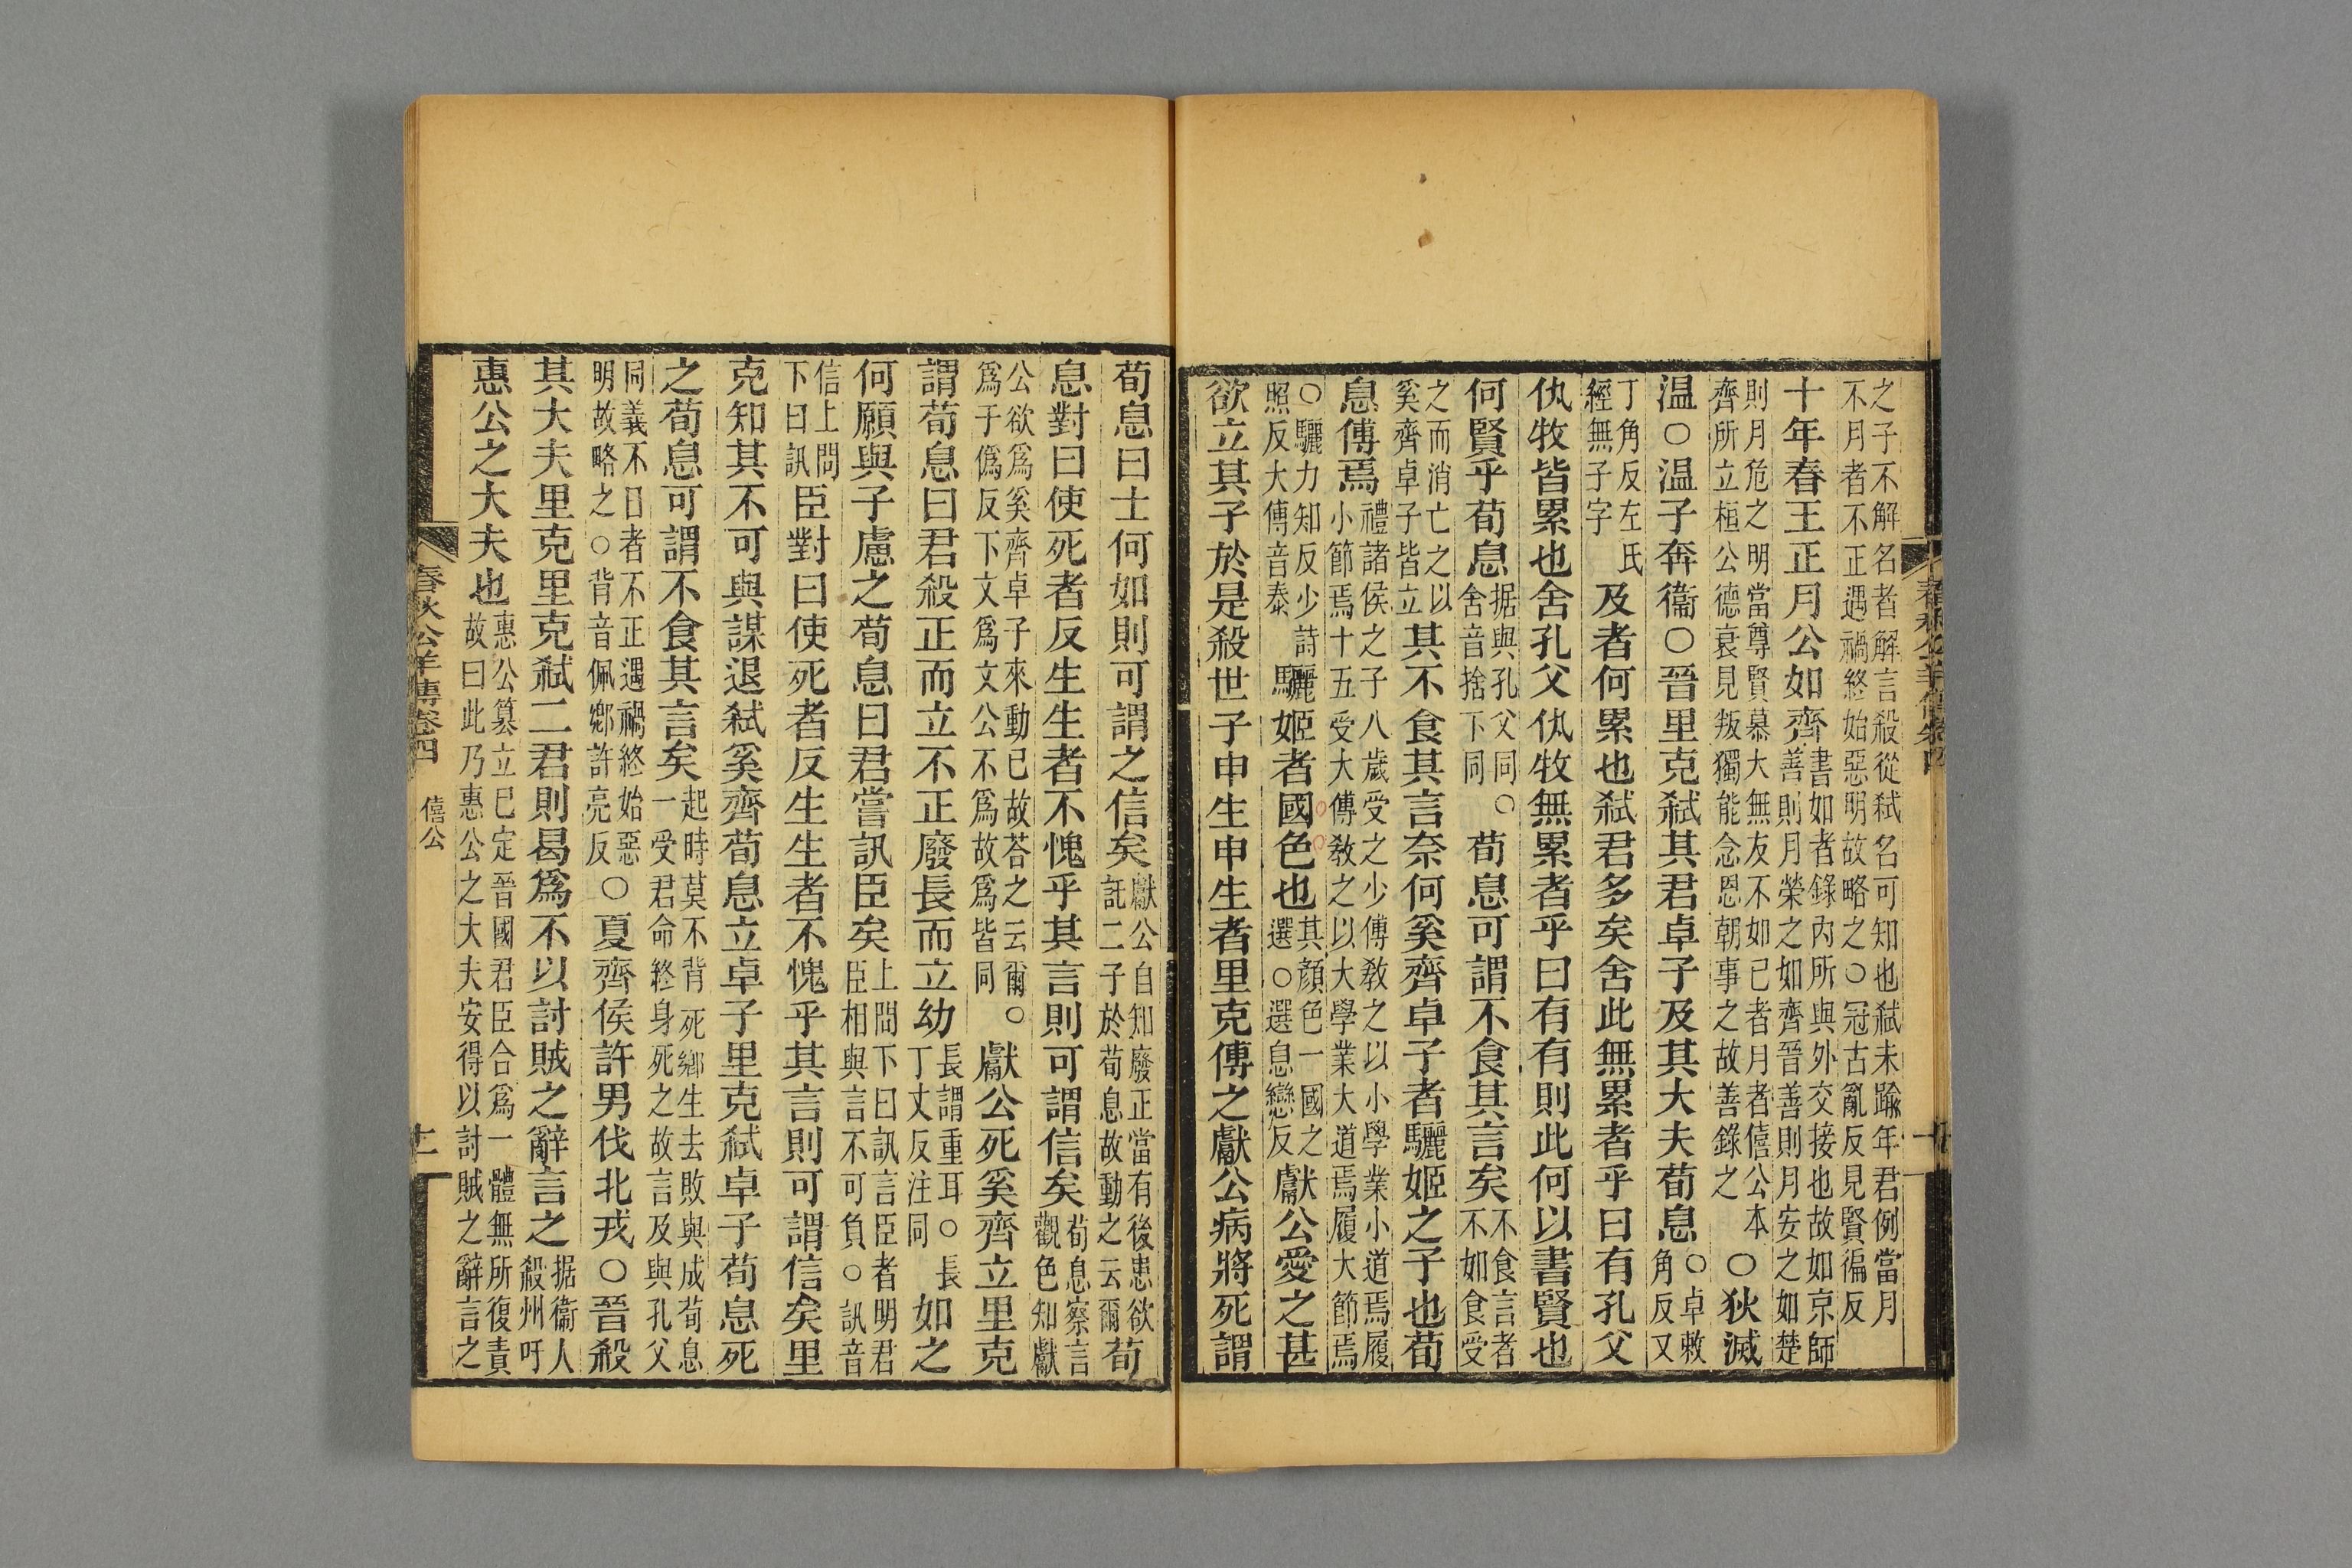 之子不解名者解言殺從弑名可知也弑未踰年君例當月不月者不正遇禍終始惡明故略之○冠古亂反見賢徧反
十年春王正月公如齊書如者錄內所與外交接也故如京師善則月榮之如齊晉善則月安之如楚
則月危之明當尊賢慕大無友不如己者月者僖公本齊所立桓公德衰見叛獨能念恩朝事之故善錄之○狄滅
温○温子奔衞○晉里克弑其君卓子及其大夫荀息○卓敕角反又
丁角反左氏經無子字及者何累也弑君多矣舍此無累者乎曰有孔父
仇牧皆累也舍孔父仇牧無累者乎曰有有則此何以書賢也
何賢乎荀息据與孔父同○舍音捨下同荀息可謂不食其言矣不食言者不如食受
之而消亡之以奚齊卓子皆立其不食其言奈何奚齊卓子者驪姬之子也荀
息傅焉禮諸侯之子八歲受之少傅敎之以小學業小道焉履小節焉十五受大傅敎之以大學業大道焉履大節焉
○驪力知反少詩照反大傅音泰驪姬者國色也其顏色一國之選○選息戀反獻公愛之甚
欲立其子於是殺世子申生申生者里克傅之獻公病將死謂
荀息曰士何如則可謂之信矣獻公自知廢正當有後患欲託二子於荀息故動之云爾荀
息對曰使死者反生生者不愧乎其言則可謂信矣荀息察言觀色知獻
公欲爲奚齊卓子來動已故荅之云爾○爲于僞反下文爲文公不爲故爲皆同獻公死奚齊立里克
謂荀息曰君殺正而立不正廢長而立幼長謂重耳○長丁丈反注同如之
何願與子慮之荀息曰君嘗訊臣矣上問下曰訊言臣者明君臣相與言不可負○訊音
信上問下曰訊臣對曰使死者反生生者不愧乎其言則可謂信矣里
克知其不可與謀退弑奚齊荀息立卓子里克弑卓子荀息死
之荀息可謂不食其言矣起時莫不背死鄉生去敗與成荀息一受君命終身死之故言及與孔父
同義不日者不正遇禍終始惡明故略之○背音佩鄉許亮反○夏齊侯許男伐北戎○晉殺
其大夫里克里克弑二君則曷爲不以討賊之辭言之据衞人殺州吁
惠公之大夫也惠公篡立已定晉國君臣合爲一體無所復責故曰此乃惠公之大夫安得以討賊之辭言之
春秋公羊傳卷四 僖公 十一